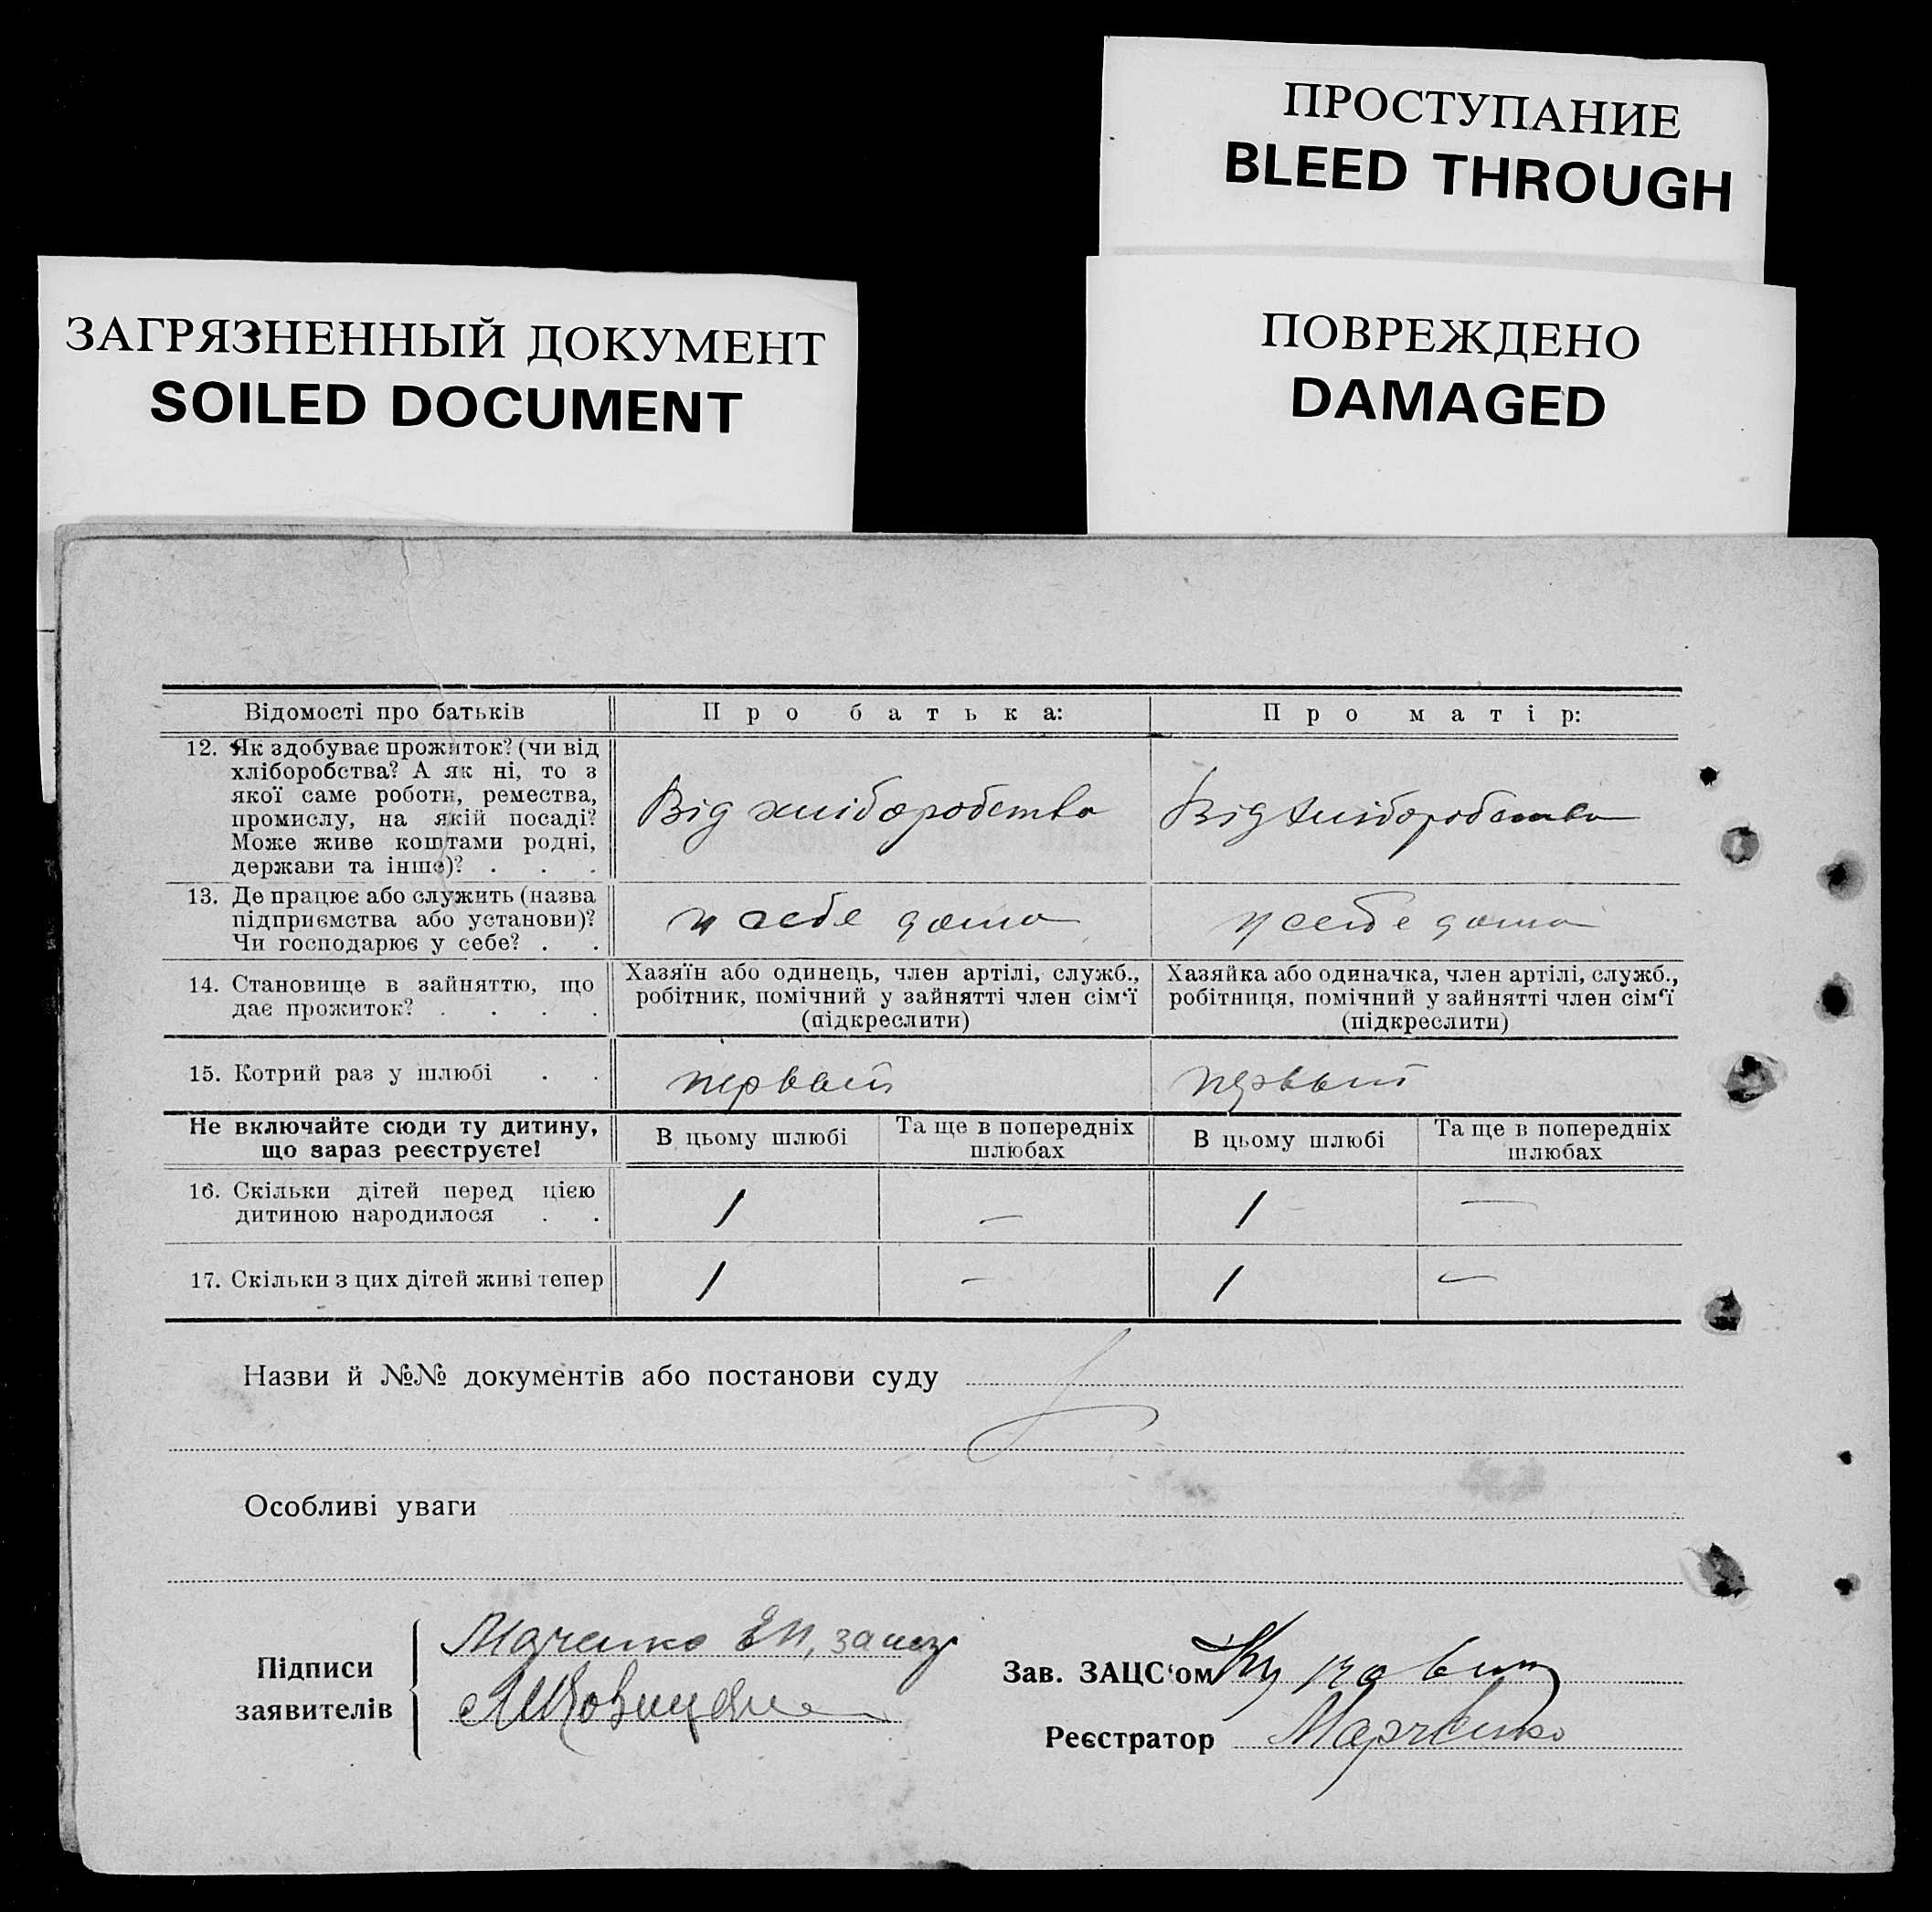 ПРОСТУПАНИЕ
BLEED THROUGH
ЗАГРЯЗНЕННЫЙ ДОКУМЕНТ
SOILED DOCUMENT
ПОВРЕЖДЕНО
DAMAGED
Відомості про батьків
Про батька:
Про матір:
12. Як здобуває прожиток? (чи від
хліборобства? А як ні, то з
якої саме роботи, ремества,
промислу, на якій посаді?
Може живе коштами родні,
держави та інше)? . . .
Від хліборобства
Від хліборобства
13. Де працює або служить (назва
підприємства або установи)?
Чи господарює у себе? . .
у себе дома
у себе дома
14. Становище в зайняттю, що
дає прожиток? . . . .
Хазяїн або одинець, член артілі, служб.,
робітник, помічний у зайнятті член сім‘ї
(підкреслити)
Хазяйка або одиначка, член артілі, служб.,
робітниця, помічний у зайнятті член сім‘ї
(підкреслити)
15. Котрий раз у шлюбі . .
первый
первый
Не включайте сюди ту дитину,
що зараз реєструєте!
В цьому шлюбі
Та ще в попередніх
шлюбах
В цьому шлюбі
Та ще в попередніх
шлюбах
16. Скільки дітей перед цією
дитиною народилося . .
1
—
1
—
17. Скільки з цих дітей живі тепер
1
—
1
—
Назви й №№ документів або постанови суду
Особливі уваги
Підписи
заявителів
Зав. ЗАЦС‘ом
Реєстратор Марченко